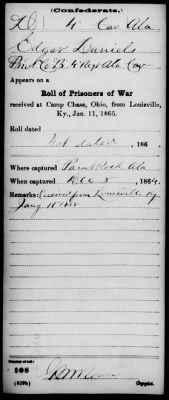 (Confederate.)
D 4 Cav Ala
Edgar Daniels
Pvt Co B. 4 Reg Ala Cav
Appears on a
Roll of Prisoners of War
received at Camp Chase, Ohio, from Louisville,
Ky., Jan. 11, 1865.
Roll dated
Not dated, 186 .
Where captured Paint Rock Ala
When captured Dec 8, 1864.
Remarks: Received from Louisville Ky
Jany 11 1865
Number of roll:
108
(639b) Copyist.